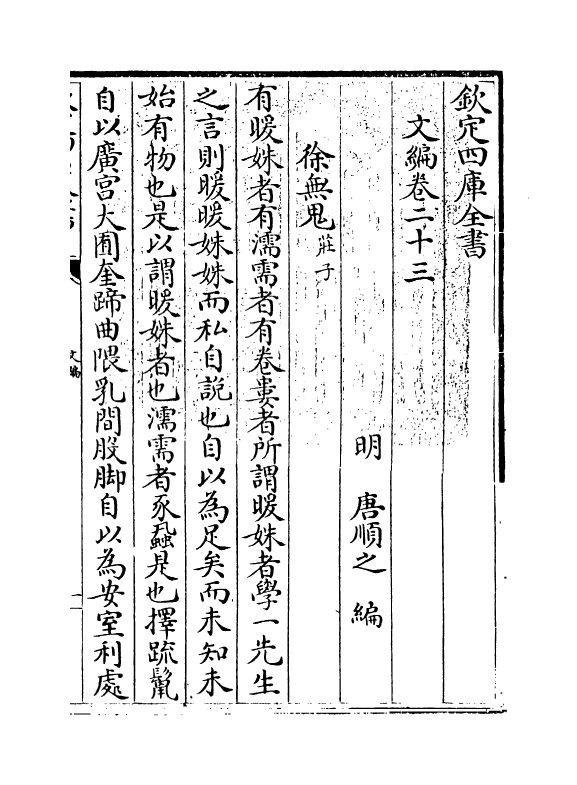 欽定四庫全書
文編卷二十三
明 唐順之 編
徐無鬼 莊子
有暖姝者有濡需者有卷婁者所謂暖姝者學一先生
之言則暖暖姝姝而私自說也自以為足矣而未知未
始有物也是以謂暖姝者也濡需者豕蝨是也擇疏鬣
自以廣宮大囿奎蹄曲隈乳間股脚自以為安室利處
文編
一